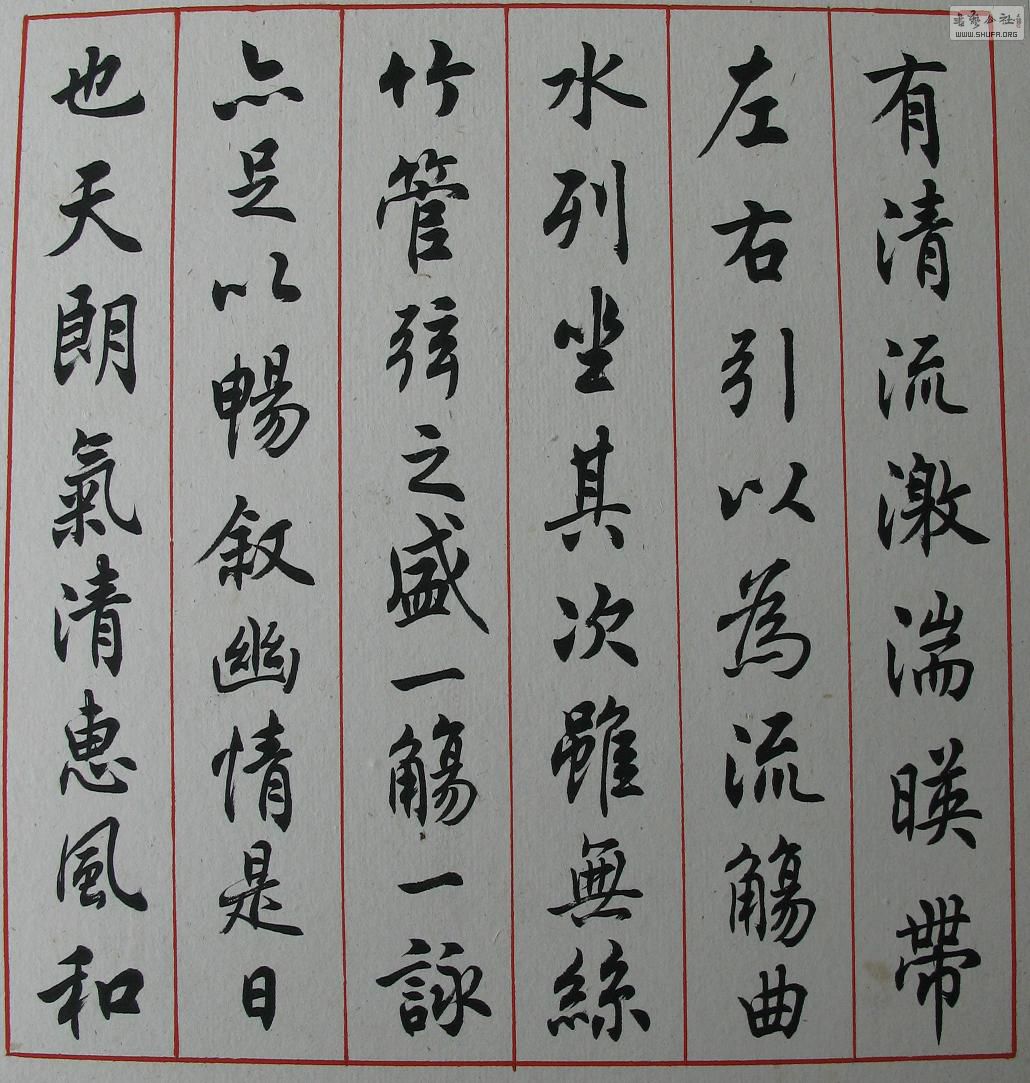 有清流激湍暎帶
左右引以為流觴曲
水列坐其次雖無絲
竹管弦之盛一觴一詠
亦足以暢敘幽情是日
也天朗氣清惠風和
WWW.SHUFA.ORG